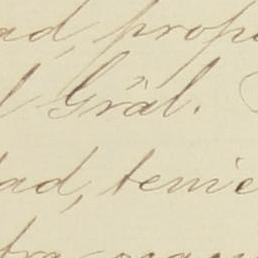 ad, prop
l Gräl.
ad, tenie